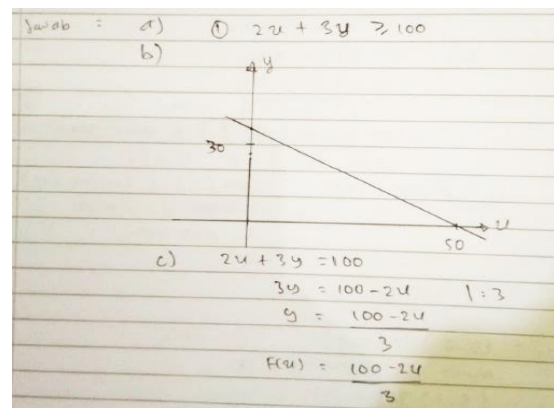 Jawab : a) ① 2x + 3y ≥ 100
b)
y
30
x
50
c) 2x + 3y = 100
3y = 100 - 2x | : 3
y = 100 - 2x
3
F(x) = 100 - 2x
3